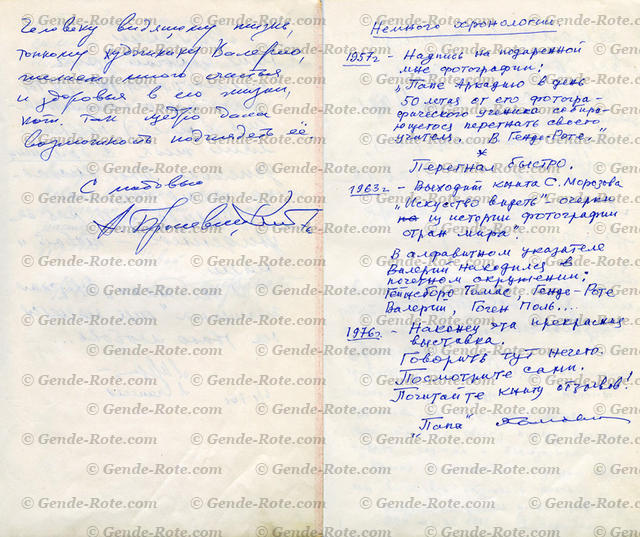 Человеку видящему жизнь,
тонкому художнику Валерию,
желаем много счастья
и здоровья в его жизни,
кот. так щедро дала
возможность подглядеть её.
С любовью
Немного хронологии
1957г – Надпись на подаренной
мне фотографии:
„Папе Аркадию в день
50 летия от его фотогра-
фического ученика собира-
ющегося перегнать своего
учителя. В Генде-Роте."
*
Перегнал быстро.
1963г – Выходит книга С. Морозова
„Искусство видеть" очерки
из истории фотографии
стран мира".
В алфавитном указателе
Валерий находился в
почетном окружении:
Гейнсборо Томас, Генде-Роте
Валерий, Гоген Поль...
1976г. – Наконец эта прекрасная
выставка.
Говорить тут нечего.
Посмотрите сами.
Почитайте книгу отзывов!
„Папа"
© Gende-Rote.com